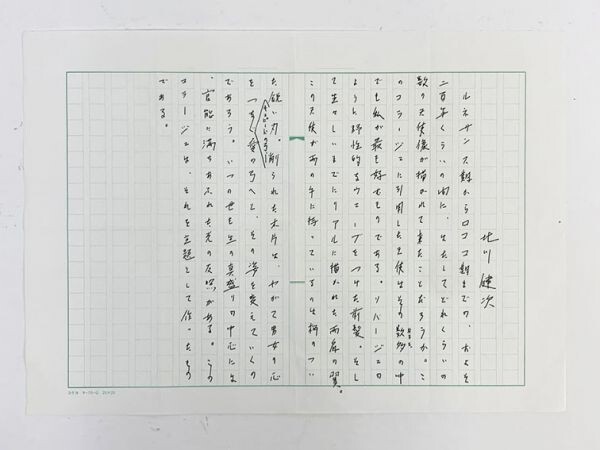 北川健次
ルネサンス期からロココ期までの、およそ
二百年くらいの間に、生たしてどれくらいの
数の天使像が描かれて来たことだろうか。こ
のコラージュに引用した天使はその数多の中
でも私が最も好むものである。ソバージュの
ように野性的なウェーブをつけた前髪。そし
て生々しいまでにリアルに描かれた両肩の翼。
この天使が両の手に持っているのは柄のつい
た鋭い刃。削られた木片は、やがて男女の心
を
愛の弓へと、その姿を変えていくの
であろう。いつの世も生の真盛りの中心には
、官能に満ちあふれた光の反照がある。この
コラージュは、それを主題として作ったもの
である。